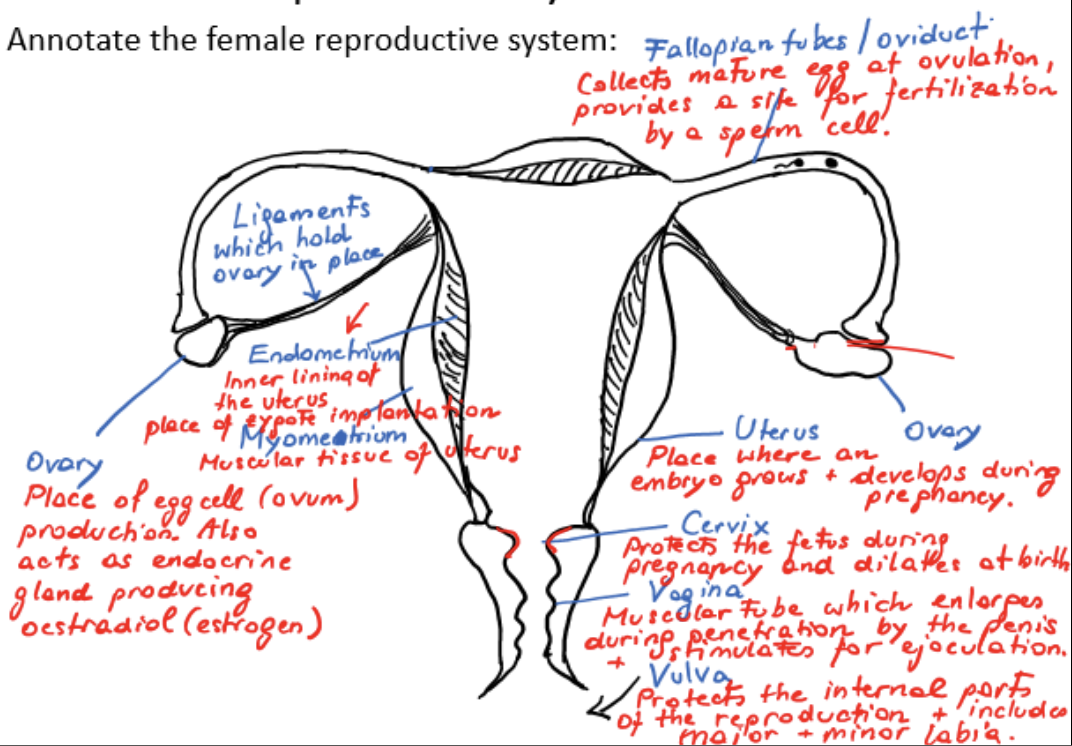 Annotate the female reproductive system:
Fallopian tubes / oviduct
Collects mature egg at ovulation,
provides a site for fertilization
by a sperm cell.
Ligaments
which hold
ovary in place
Endometrium
Inner lining of
the uterus
place of zygote implantation
Myometrium
Muscular tissue of uterus
Ovary
Place of egg cell (ovum)
production. Also
acts as endocrine
gland producing
oestradiol (estrogen)
Uterus
Place where an
embryo grows + develops during
pregnancy.
Ovary
Cervix
Protects the fetus during
pregnancy and dilates at birth
Vagina
Muscular tube which enlarges
during penetration by the penis
+ stimulates for ejaculation.
Vulva
Protects the internal parts
of the reproduction + includes
major + minor labia.